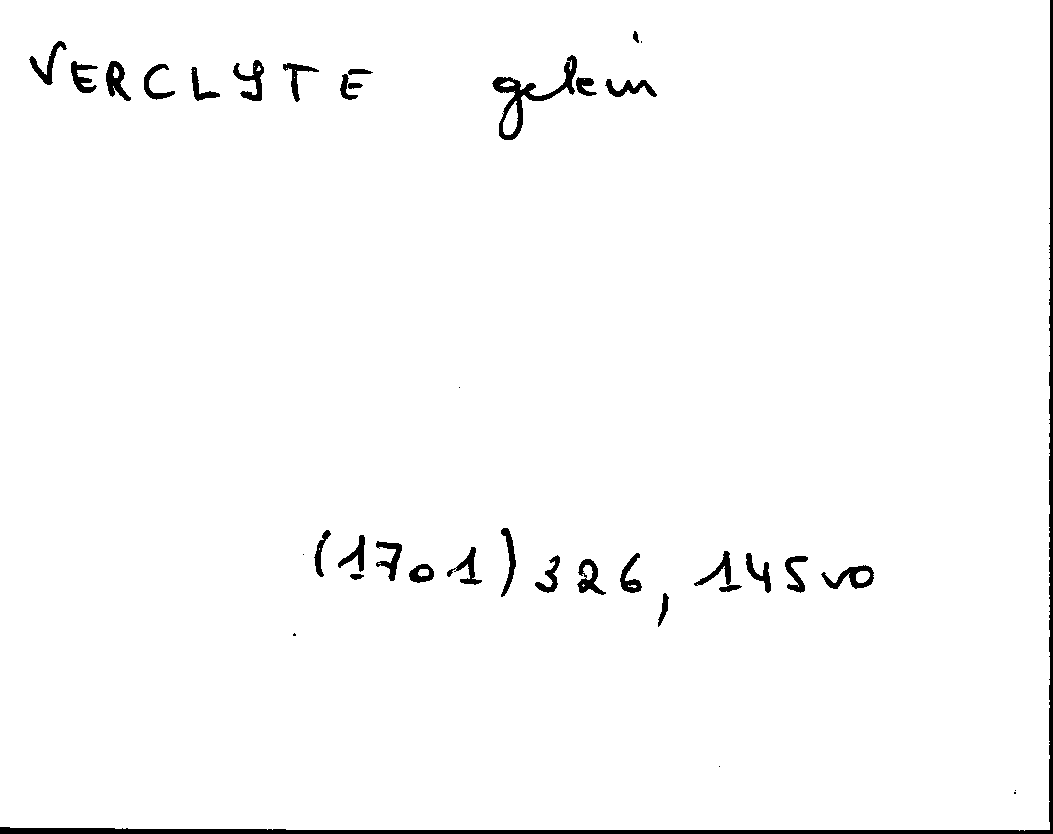 VERCLYTE gelein
(1701) 326, 145vo